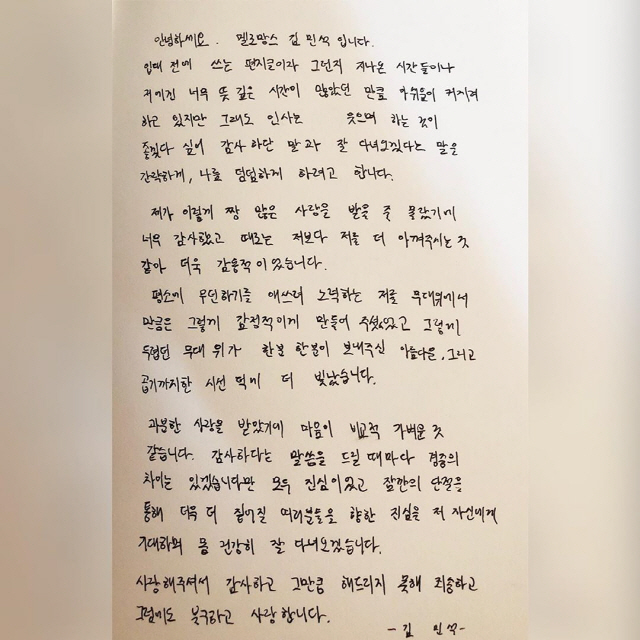 안녕하세요. 멜로망스 김민석 입니다.
입대 전에 쓰는 편지글이라 그런지 지나온 시간들이나
저에겐 너무 뜻 깊은 시간이 많았던 만큼 아쉬움이 커지려
하고 있지만 그래도 인사는 웃으며 하는 것이
좋겠다 싶어 감사하단 말과 잘 다녀오겠다는 말을
간략하게, 나름 덤덤하게 하려고 합니다.
제가 이렇게 짱 많은 사랑을 받을 줄 몰랐기에
너무 감사했고 때로는 저보다 저를 더 아껴주시는 것
같아 더욱 감동적이었습니다.
평소에 무던하기를 애쓰려 노력하는 저를 무대위에서
만큼은 그렇게 감정적이게 만들어 주셨었고 그렇게
두렵던 무대 위가 한분 한분이 보내주신 아름다운, 그리고
곱기까지한 시선 덕에 더 빛났습니다.
과분한 사랑을 받았기에 마음이 비교적 가벼운 것
같습니다. 감사하다는 말씀을 드릴 때마다 경중의
차이는 있겠습니다만 모두 진심이었고 잠깐의 단절을
통해 더욱 더 짙어질 여러분들을 향한 진심을 저 자신에게
기대하며 몸 건강히 잘 다녀오겠습니다.
사랑해주셔서 감사하고 그만큼 해드리지 못해 죄송하고
그럼에도 북구하고 사랑합니다.
- 김 민석 -